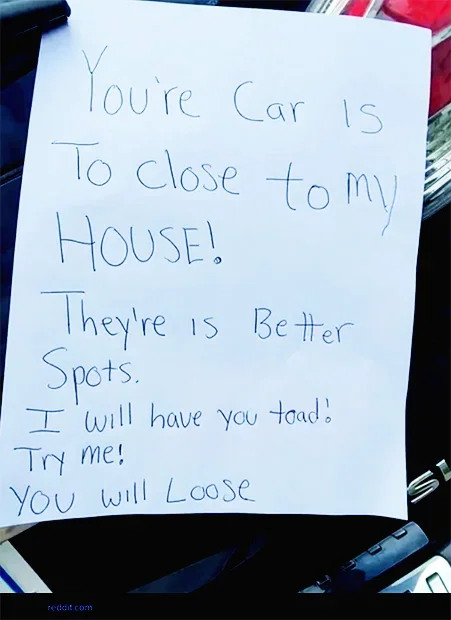 You're Car is
To close to my
HOUSE!
They're is Better
Spots.
I will have you toad!
Try me!
You will Loose
SI
reddit.com